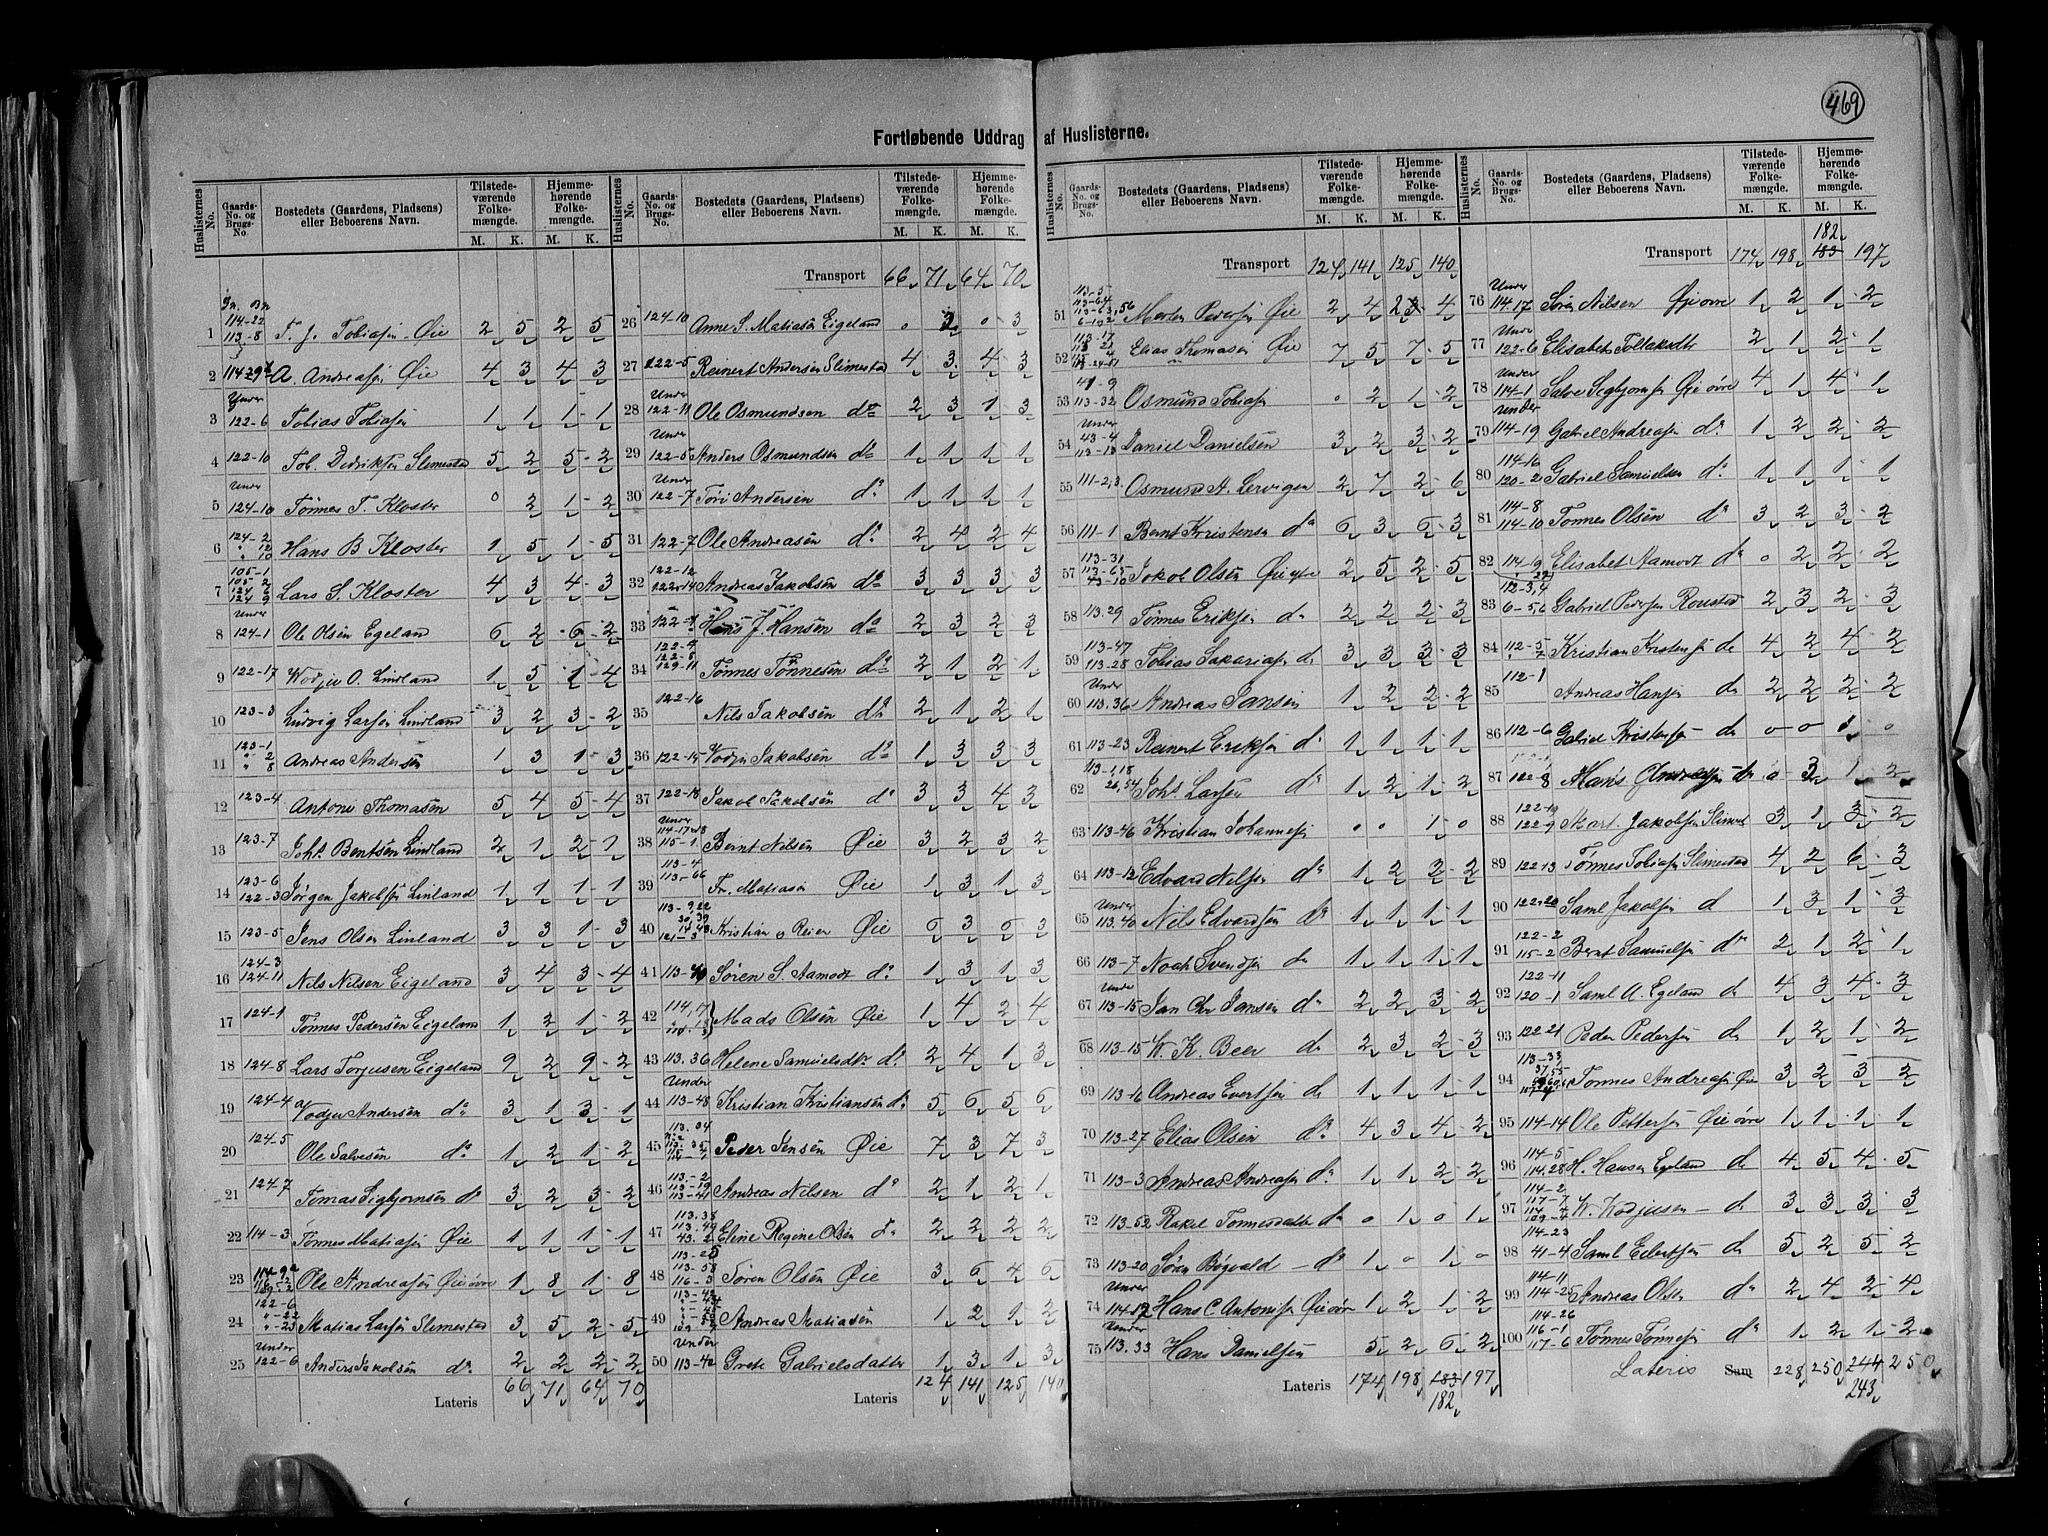 469
Fortløbende Uddrag af Huslisterne.
Huslisternes No. Gaards-No. og Brugs-No. Bostedets (Gaardens, Pladsens) eller Beboerens Navn. Tilstedeværende Folkemængde. M. K. Hjemmehørende Folkemængde. M. K.
Gn. Bn.
1 114-22 113-8 T. J. Tobiasen Øie 2 5 2 5
2 A. Andreasen Øie 4 3 4 3
3 Under 122-6 Tobias Tobiasen 1 1 1 1
4 122-10 Tob. Didriksen Slimestad 5 2 5 2
5 Under 124-10 Tønnes T. Kloster 0 2 1 2
6 124-2 " 12 " 10 Hans B. Kloster 1 5 1 5
7 105-1 105-2 124-6 124-9 Lars S. Kloster 4 3 4 3
8 Under 124-1 Ole Olsen Egeland 6 2 6 2
9 122-17 Vodjer O. Lindland 1 5 1 4
10 123-3 Ludvig Larsen Lindland 3 2 3 2
11 123-1 " 2 " 8 Andreas Andersen 1 3 1 3
12 123-4 Antoni Thomasen 5 4 5 4
13 123-7 Joh. Bentsen Lindland 2 1 2 1
14 123-6 122-3 Jørgen Jakobsen Linland 1 1 1 1
15 123-5 Jens Olsen Linland 3 3 1 3
16 124-3 124-11 Nils Nilsen Eigeland 3 4 3 4
17 124-1 Tønnes Pedersen Eigeland 1 2 1 2
18 124-8 Lars Torjusen Eigeland 9 2 9 2
19 124-4 Vodjer Andersen do 3 1 3 1
20 124-5 Ole Salvesen do 1 2 1 2
21 124-7 Tomas Sigbjørnsen do 3 2 3 2
22 114-3 Tønnes Matiasen Øie 1 1 1 1
23 Ole Andreasen Øie øvre 1 8 1 8
24 122-6 " -22 " -23 Matias Larsen Slimestad 3 5 2 5
25 Under 122-6 Anders Jakobsen do 2 2 2 2
Lateris 66 71 64 70
Transport 66 71 64 70
26 124-10 Anne S. Matiasen Eigeland 0 3 0 3
27 122-5 Reinert Andersen Slimestad 4 3 4 3
28 Under 122-11 Ole Osmundsen do 2 3 1 3
29 Under 122-5 Anders Osmundsen do 1 1 1 1
30 122-7 Tori Andersen do 1 1 1 1
31 122-7 Ole Andreasen do 2 4 2 4
32 122-12 122-14 Andreas Jakobsen do 3 3 3 3
33 Hans J. Hansen do 2 3 2 3
34 122-4 122-8 129-11 Tønnes Tønnesen do 2 1 2 1
35 122-16 Nils Jakobsen do 2 1 2 1
36 122-15 Vodjer Jakobsen do 1 3 3 3
37 122-18 Jakob Jakobsen do 3 3 4 3
38 Under 114-17 115-1 Bernt Nilsen Øie 3 2 3 2
39 113-4 113-66 Fr. Matiasen Øie 1 3 1 3
40 113-9,22 30,39 121-3 Kristian Reier Øie 6 3 6 3
41 Søren S. Aamodt do 1 3 1 3
42 Mads Olsen Øie 1 4 2 4
43 113.36 Helene Samuelsdtr do 2 4 1 3
44 Under 113-48 Kristian Kristiansen do 5 6 5 6
45 113.34 Peder Jensen Øie 7 3 7 3
46 113-2 113-19 113-41 Andreas Nilsen do 2 1 2 1
47 113.38 113-49 43.2 Elene Regine Olsen do 2 2 2 2
48 113-25 113-58 116-3 Søren Olsen Øie 3 6 4 6
49 113-42 Andreas Matiasen 1 2 1 2
50 Under 113-42 Grete Gabrielsdatter 1 3 1 3
Lateris 124 141 125 140
Transport 124 141 125 140
51 113-5 113-64 Morten Pedersen Øie 2 4 2 4
52 113-17 Elias Thomasen Øie 7 5 7 5
53 41-9 113-32 Osmund Tobiasen 0 2 1 2
54 Under 43-4 113-13 Daniel Danielsen 3 2 3 2
55 111-2,3 Osmund A. Lervigen 2 7 2 6
56 111-1 Bernt Kristensen do 6 3 6 3
57 113-31 113-65 43-10 Jakob Olsen Øie 2 5 2 5
58 113.29 Tønnes Eriksen do 2 2 2 3
59 113-47 113-28 Tobias Sakariasen do 3 3 3 3
60 Under 113.36 Andreas Jansen 1 2 2 2
61 113-23 Reinert Eriksen do 1 1 1 1
62 113-1,18 26,54 Joh. Larsen do 1 2 1 2
63 113-46 Kristian Johannesen 0 0 1 0
64 113-12 Edvard Nilsen do 1 2 2 2
65 Under 113.40 Nils Edvardsen do 1 1 1 1
66 113-7 Noah Svendsen do 1 1 1 1
67 Under 113-15 Jan Chr Jansen do 2 2 3 2
68 113-15 W. K. Beer do 2 3 2 3
69 113-16 Andreas Evertsen do 1 1 1 1
70 113-27 Elias Olsen do 4 3 4 2
71 113-3 Andreas Andreasen do 1 1 2 2
72 113-52 Rakel Tønnesdatter do 0 1 0 1
73 113-20 Søren Bøgvald do 1 0 1 0
74 Under 114-17 Hans C. Antonisen Øie øvre 1 2 1 2
75 Under 113.33 Hans Danielsen 5 2 6 2
Lateris 174 198 183 197
182
Transport 174 198 183 197
182
76 Under 114.17 Søren Nilsen Øie øvre 1 2 1 2
77 Under 122-6 Elisabet Tollaksdtr 2 1 2 1
78 Under 114-1 Salve Sigbjørnsen Øie øvre 4 1 4 1
79 Under 114-19 Gabriel Andreasen do 1 2 2 2
80 114-16 120-2 Gabriel Samuelsen do 1 1 1 1
81 114-8 114-10 Tønnes Olsen do 3 2 3 2
82 114-19 Elisabet Aamodt do 0 2 2 2
83 112-3,4 6-5,6 Gabriel Pedersen Roustad 2 3 2 3
84 112-5 " 7 Kristian Kristensen do 4 2 4 2
85 112-1 Andreas Hansen do 2 2 2 2
86 112-6 Gabriel Kristensen do 0 0 1 0
87 122-8 Hans Andreasen do 0 3 1 2
88 122-19 122-9 Mart. Jakobsen Slimest 3 1 3 2
89 122-13 Tønnes Tobiasen Slimestad 4 2 6 3
90 122-20 Saml Jakobsen d 1 3 1 3
91 122-2 115-2 Bernt Samuelsen do 2 1 2 1
92 122-11 120-1 Saml A. Egeland do 4 3 4 3
93 122-21 Peder Pedersen do 1 2 1 2
94 113-33 37,55 Tønnes Andreasen Øie 3 2 3 2
95 114-14 Ole Pettersen Øie øvre 1 1 1 1
96 114-5 114.28 H. Hansen Egeland do 4 5 4 5
97 114-2 117-7 114-4 109-4 W. Vodjesen do 3 3 3 3
98 114-23 41-4 Saml Eilertsen do 5 2 5 2
99 114-11 114-25 Andreas Olsen do 2 4 2 4
100 114-26 116-1 117-6 Tønnes Tønnesen do 1 2 1 2
Lateris Sum 228 250 244 250
243